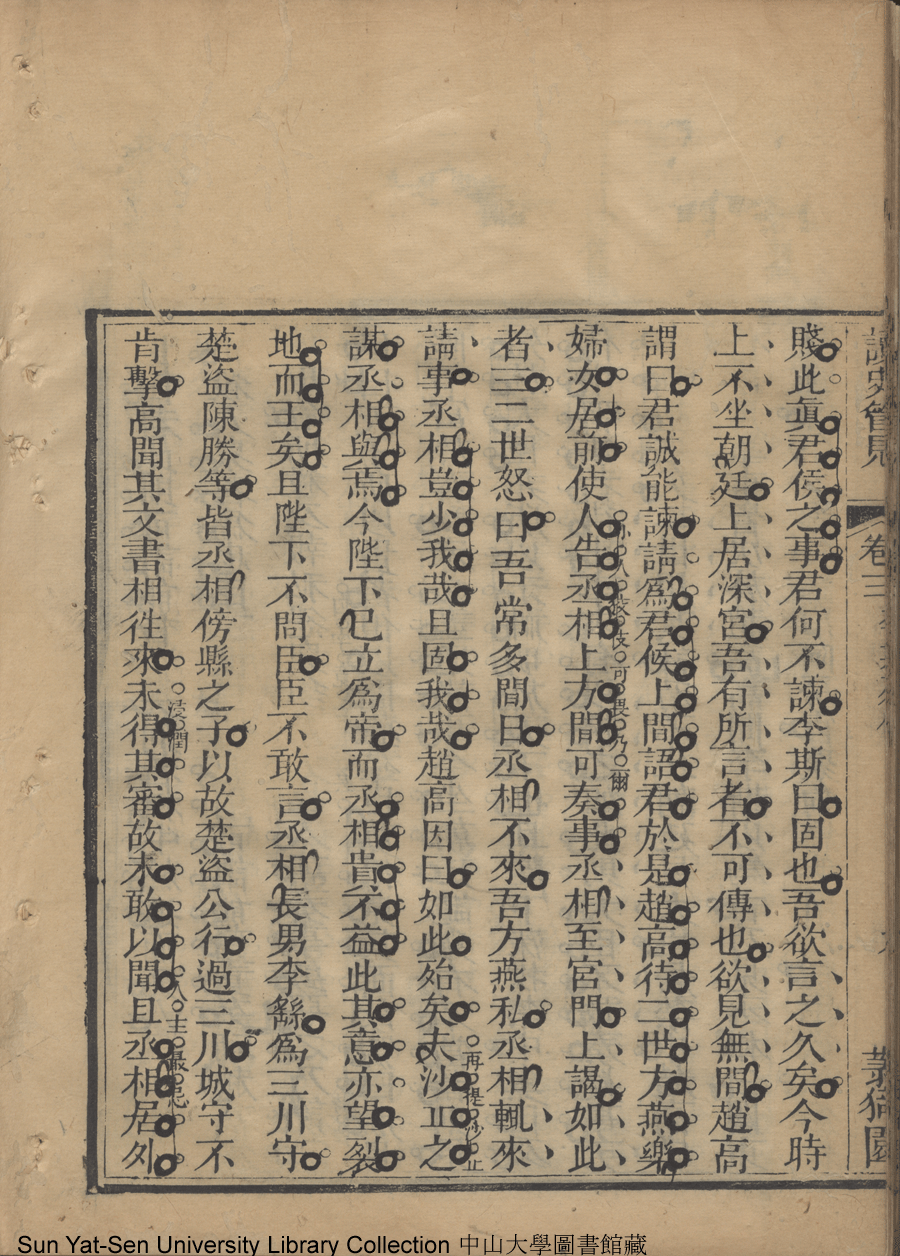 讀史管見 卷三
賤此眞君侯之事君何不諫李斯曰固也吾欲言之久矣今時
上不坐朝廷上居深宮吾有所言者不可傳也欲見無間趙高
謂曰君誠能諫請爲君候上間語君於是趙高待二世方燕樂
婦女居前使人告丞相上方間可奏事丞相至宮門上謁如此
者三二世怒曰吾常多間日丞相不來吾方燕私丞相輒來
請事丞相豈少我哉且固我哉趙高因曰如此殆矣夫沙丘之
謀丞相與焉今陛下已立爲帝而丞相貴不益此其意亦望裂
地而王矣且陛下不問臣臣不敢言丞相長男李繇爲三川守
楚盜陳勝等皆丞相傍縣之子以故楚盜公行過三川城守不
肯擊高聞其文書相徃來未得其審故未敢以聞且丞相居外
可恨乃爾
再提沙丘
浸潤
人主最忌
Sun Yat-Sen University Library Collection 中山大學圖書館藏